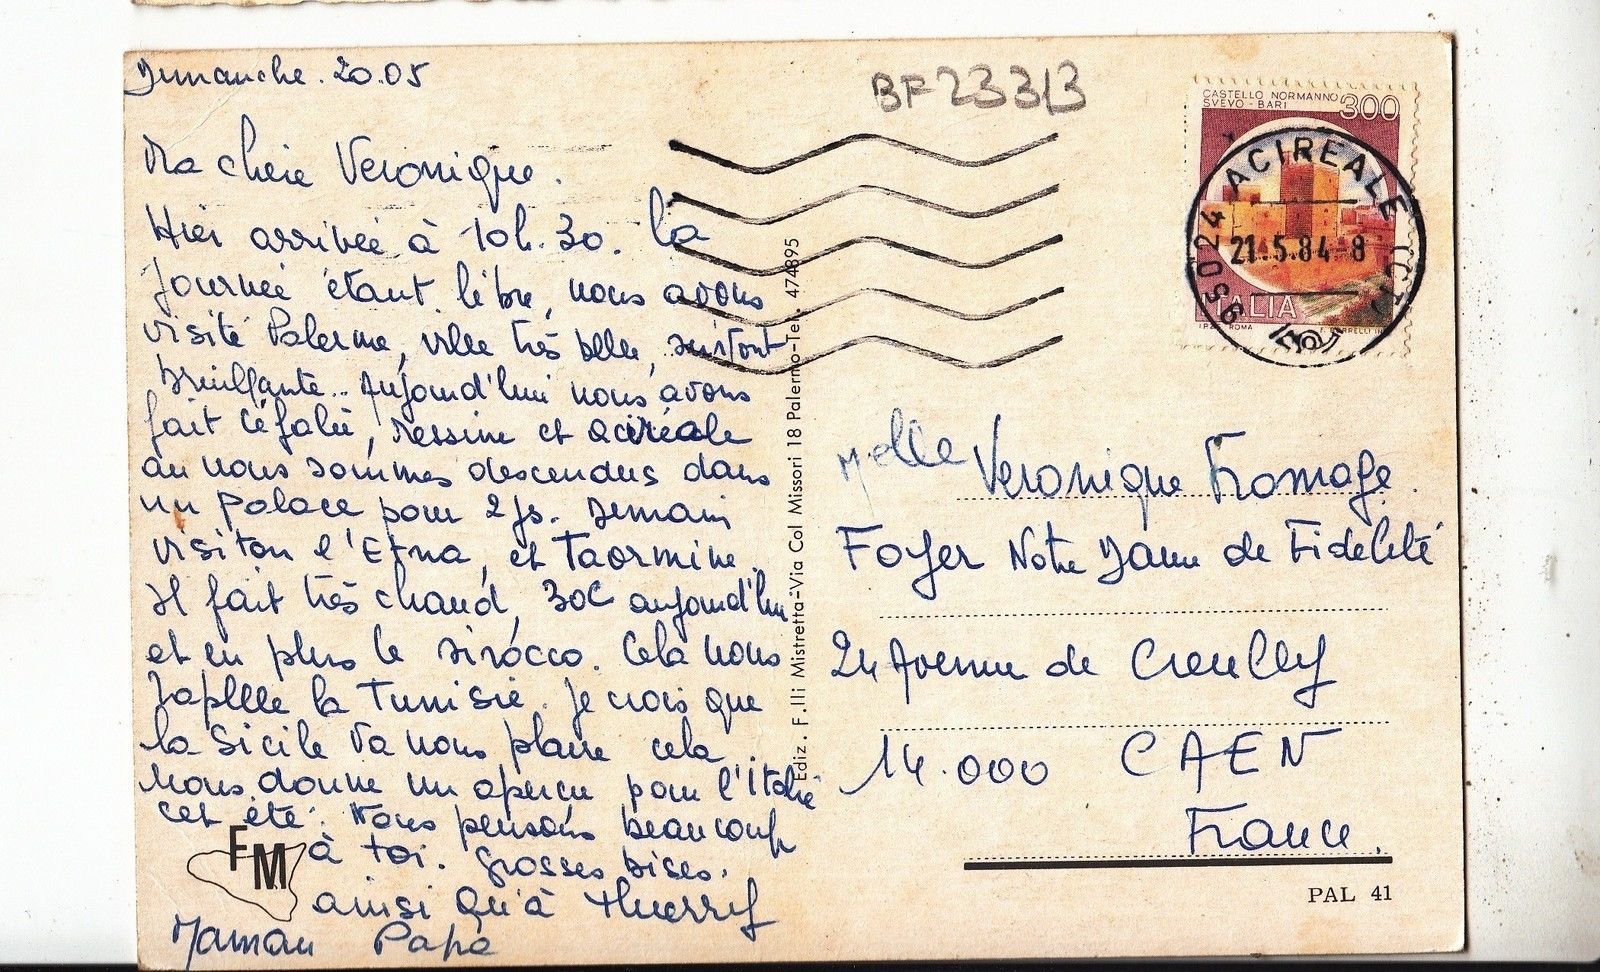 Dimanche. 20.05
Ma chère Veronique.
Hier arrivée à 10h.30. la
journée étant libre, nous avons
visité Palerme, ville très belle, surtout
bruillante.. Aujourd'hui nous avons
fait Céfalu, Messine et Aciréale
ou nous sommes descendus dans
un palace pour 2 js. Demain
visiton l'Etna, et Taormine.
Il fait très chaud, 30C aujourd'hui
et en plus le sirocco. Cela nous
rapplle la Tunisie. Je crois que
la Sicile va nous plaire cela
nous donne un apercu pour l'Italie
cet été. Nous pensons beaucoup
à toi. Grosses bises.
ainsi qu'à Thierry
Maman Papa
FM
Ediz. F.lli Mistretta-Via Col Missori 18 Palermo-Tel. 474895
BF23313
CASTELLO NORMANNO
SVEVO - BARI
300
ITALIA
I.P.Z.S. ROMA
95024 ACIREALE (CT)
21.5.84-8
Melle Veronique Fromage.
Foyer Notre Dame de Fidelité
24 Avenue de Creully
14.000 CAEN
France.
PAL 41